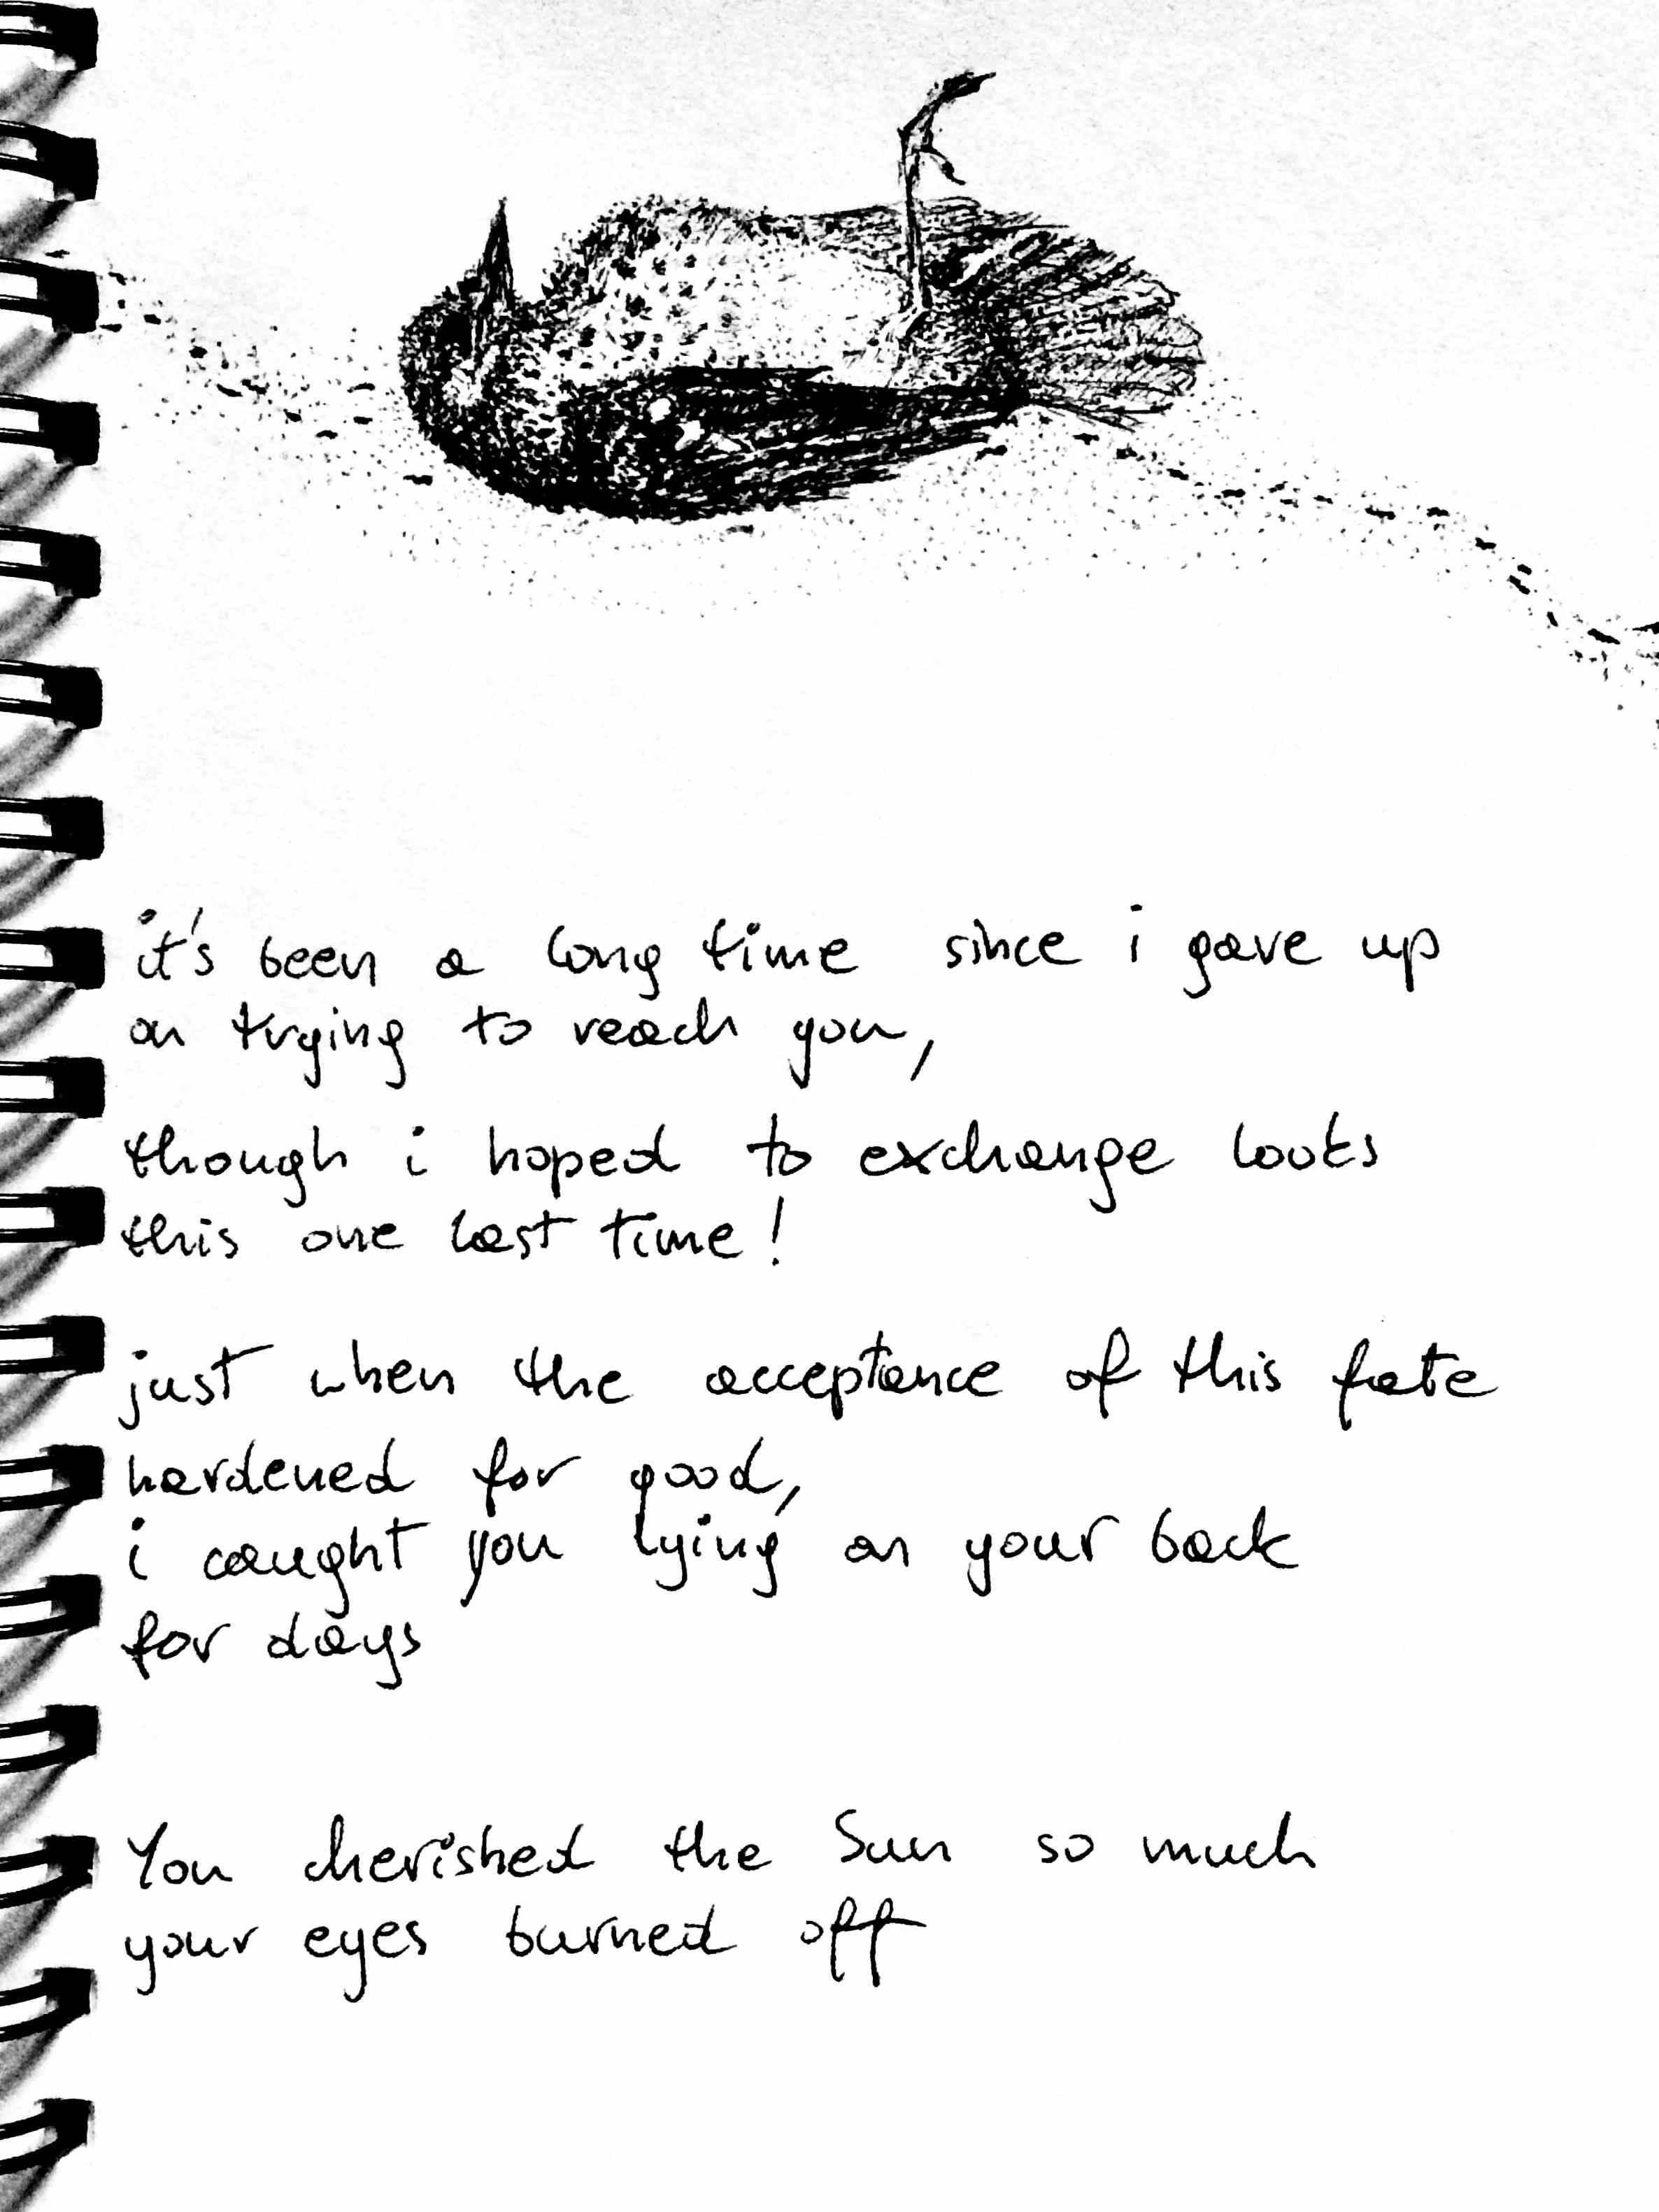 it's been a long time since i gave up
on trying to reach you,
though i hoped to exchange looks
this one last time!
just when the acceptance of this fate
hardened for good,
i caught you lying on your back
for days
You cherished the Sun so much
your eyes burned off